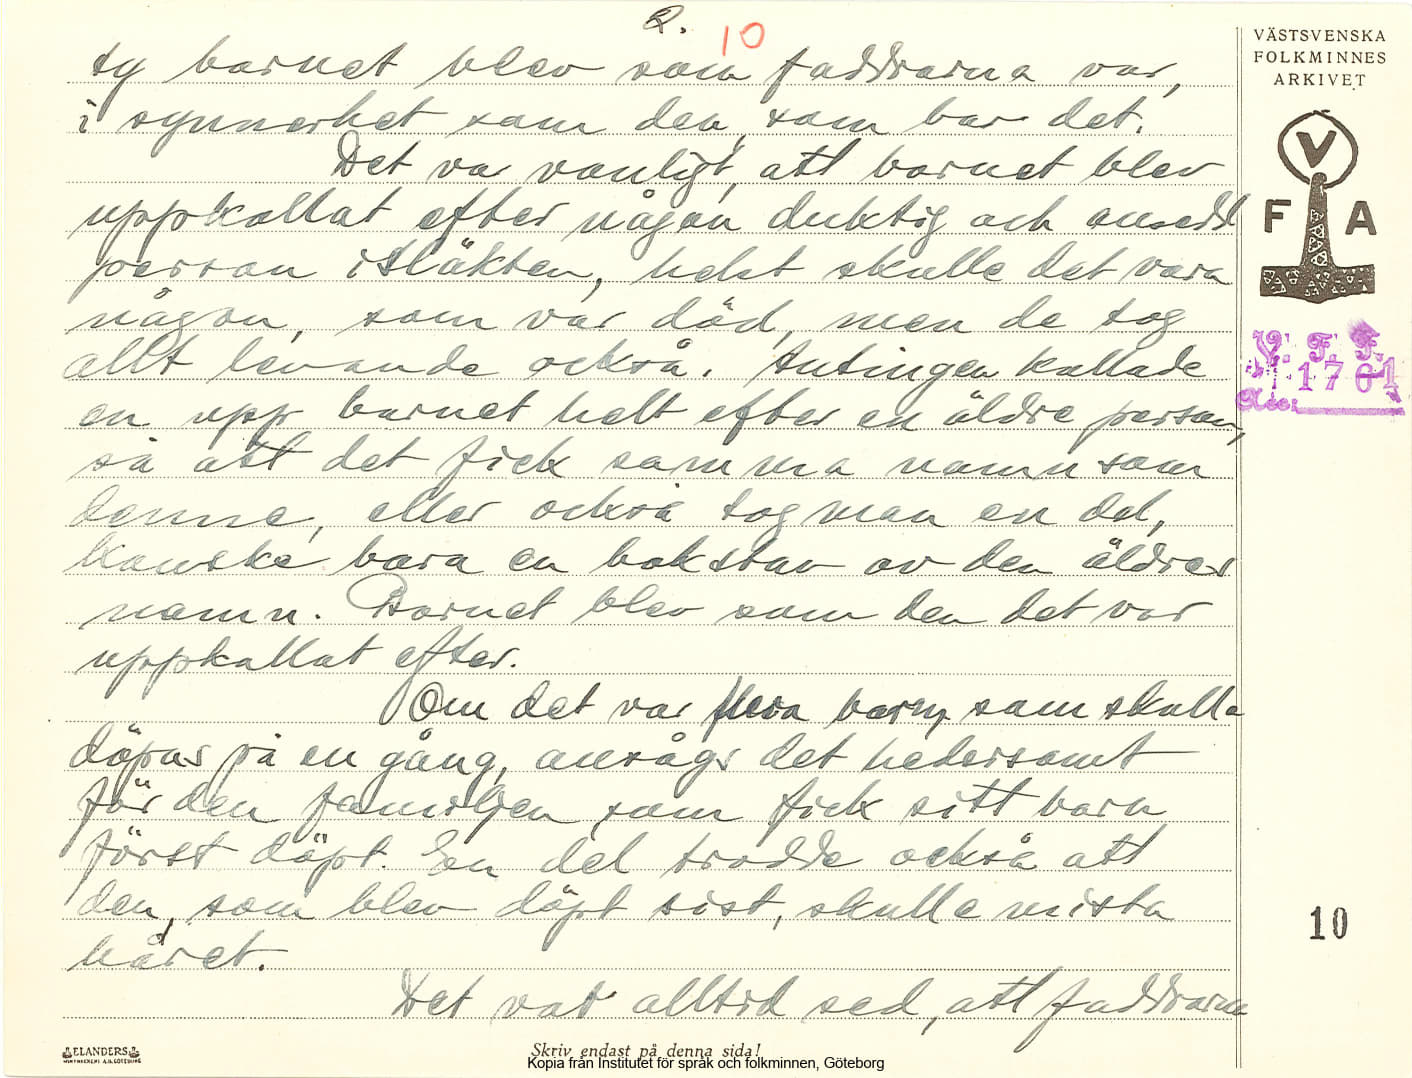 2.
10
ty barnet blev som faddrarna var,
i synnerhet som den, som bar det.
Det var vanligt, att barnet blev
uppkallat efter någon duktig och ansedd
person i släkten, helst skulle det vara
någon, som var död, men de tog
allt levande också. Antingen kallade
en upp barnet helt efter en äldre person,
så att det fick samma namn som
denne, eller också tog man en del,
kanske bara en bokstav av den äldres
namn. Barnet blev som den det var
uppkallat efter.
Om det var flera barn, som skulle
döpas på en gång, ansågs det hedersamt
för den familjen, som fick sitt barn
först döpt. En del trodde också att
den, som blev döpt sist, skulle mista
håret.
Det var alltid sed, att faddrarna
VÄSTSVENSKA
FOLKMINNES
ARKIVET
V
F A
V. F. F.
1701
Acc.
10
ELANDERS
Skriv endast på denna sida!
Kopia från Institutet för språk och folkminnen, Göteborg